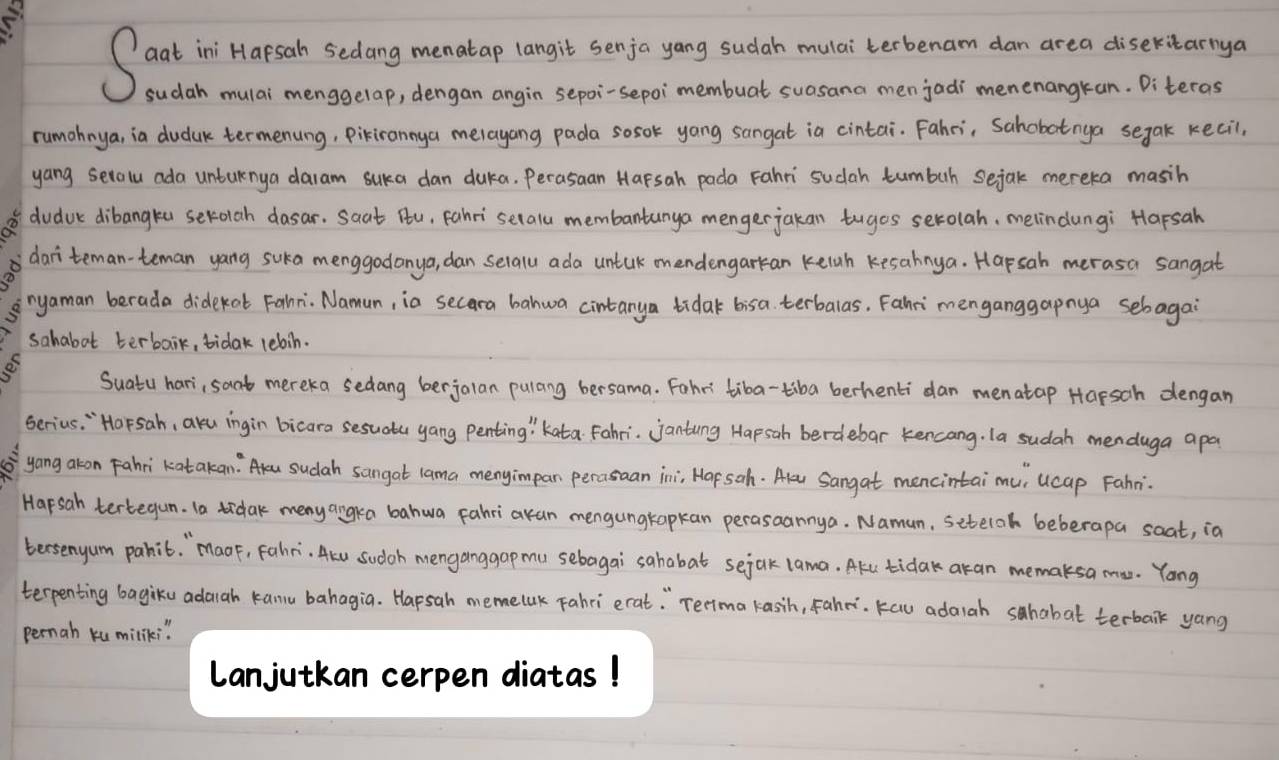 Saat ini Hafsah sedang menatap langit senja yang sudah mulai terbenam dan area disekitarnya
sudah mulai menggelap, dengan angin sepoi-sepoi membuat suasana menjadi menenangkan. Di teras
rumahnya, ia duduk termenung, Pikirannya melayang pada sosok yang sangat ia cintai. Fahri, Sahabatnya sejak kecil,
yang selalu ada untuknya dalam suka dan duka. Perasaan Hafsah pada Fahri sudah tumbuh sejak mereka masih
duduk dibangku sekolah dasar. Saat itu, Fahri selalu membantunya mengerjakan tugas sekolah, melindungi Hafsah
dari teman-teman yang suka menggodanya, dan selalu ada untuk mendengarkan keluh kesahnya. Hafsah merasa sangat
nyaman berada didekat Fahri. Namun, ia secara bahwa cintanya tidak bisa terbalas. Fahri menganggapnya sebagai
sahabat terbaik, tidak lebih.
Suatu hari, saat mereka sedang berjalan pulang bersama. Fahri tiba-tiba berhenti dan menatap Hafsah dengan
serius. "Hafsah, aku ingin bicara sesuatu yang penting." kata Fahri. Jantung Hafsah berdebar kencang. Ia sudah menduga apa
yang akan Fahri katakan. "Aku sudah sangat lama menyimpan perasaan ini, Hafsah. Aku sangat mencintaimu," ucap Fahri.
Hafsah tertegun. Ia tidak menyangka bahwa Fahri akan mengungkapkan perasaannya. Namun, setelah beberapa saat, ia
tersenyum pahit. "Maaf, Fahri. Aku sudah menganggapmu sebagai sahabat sejak lama. Aku tidak akan memaksamu. Yang
terpenting bagiku adalah kamu bahagia. Hafsah memeluk Fahri erat. "Terima kasih, Fahri. Kau adalah sahabat terbaik yang
pernah ku miliki".
Lanjutkan cerpen diatas !